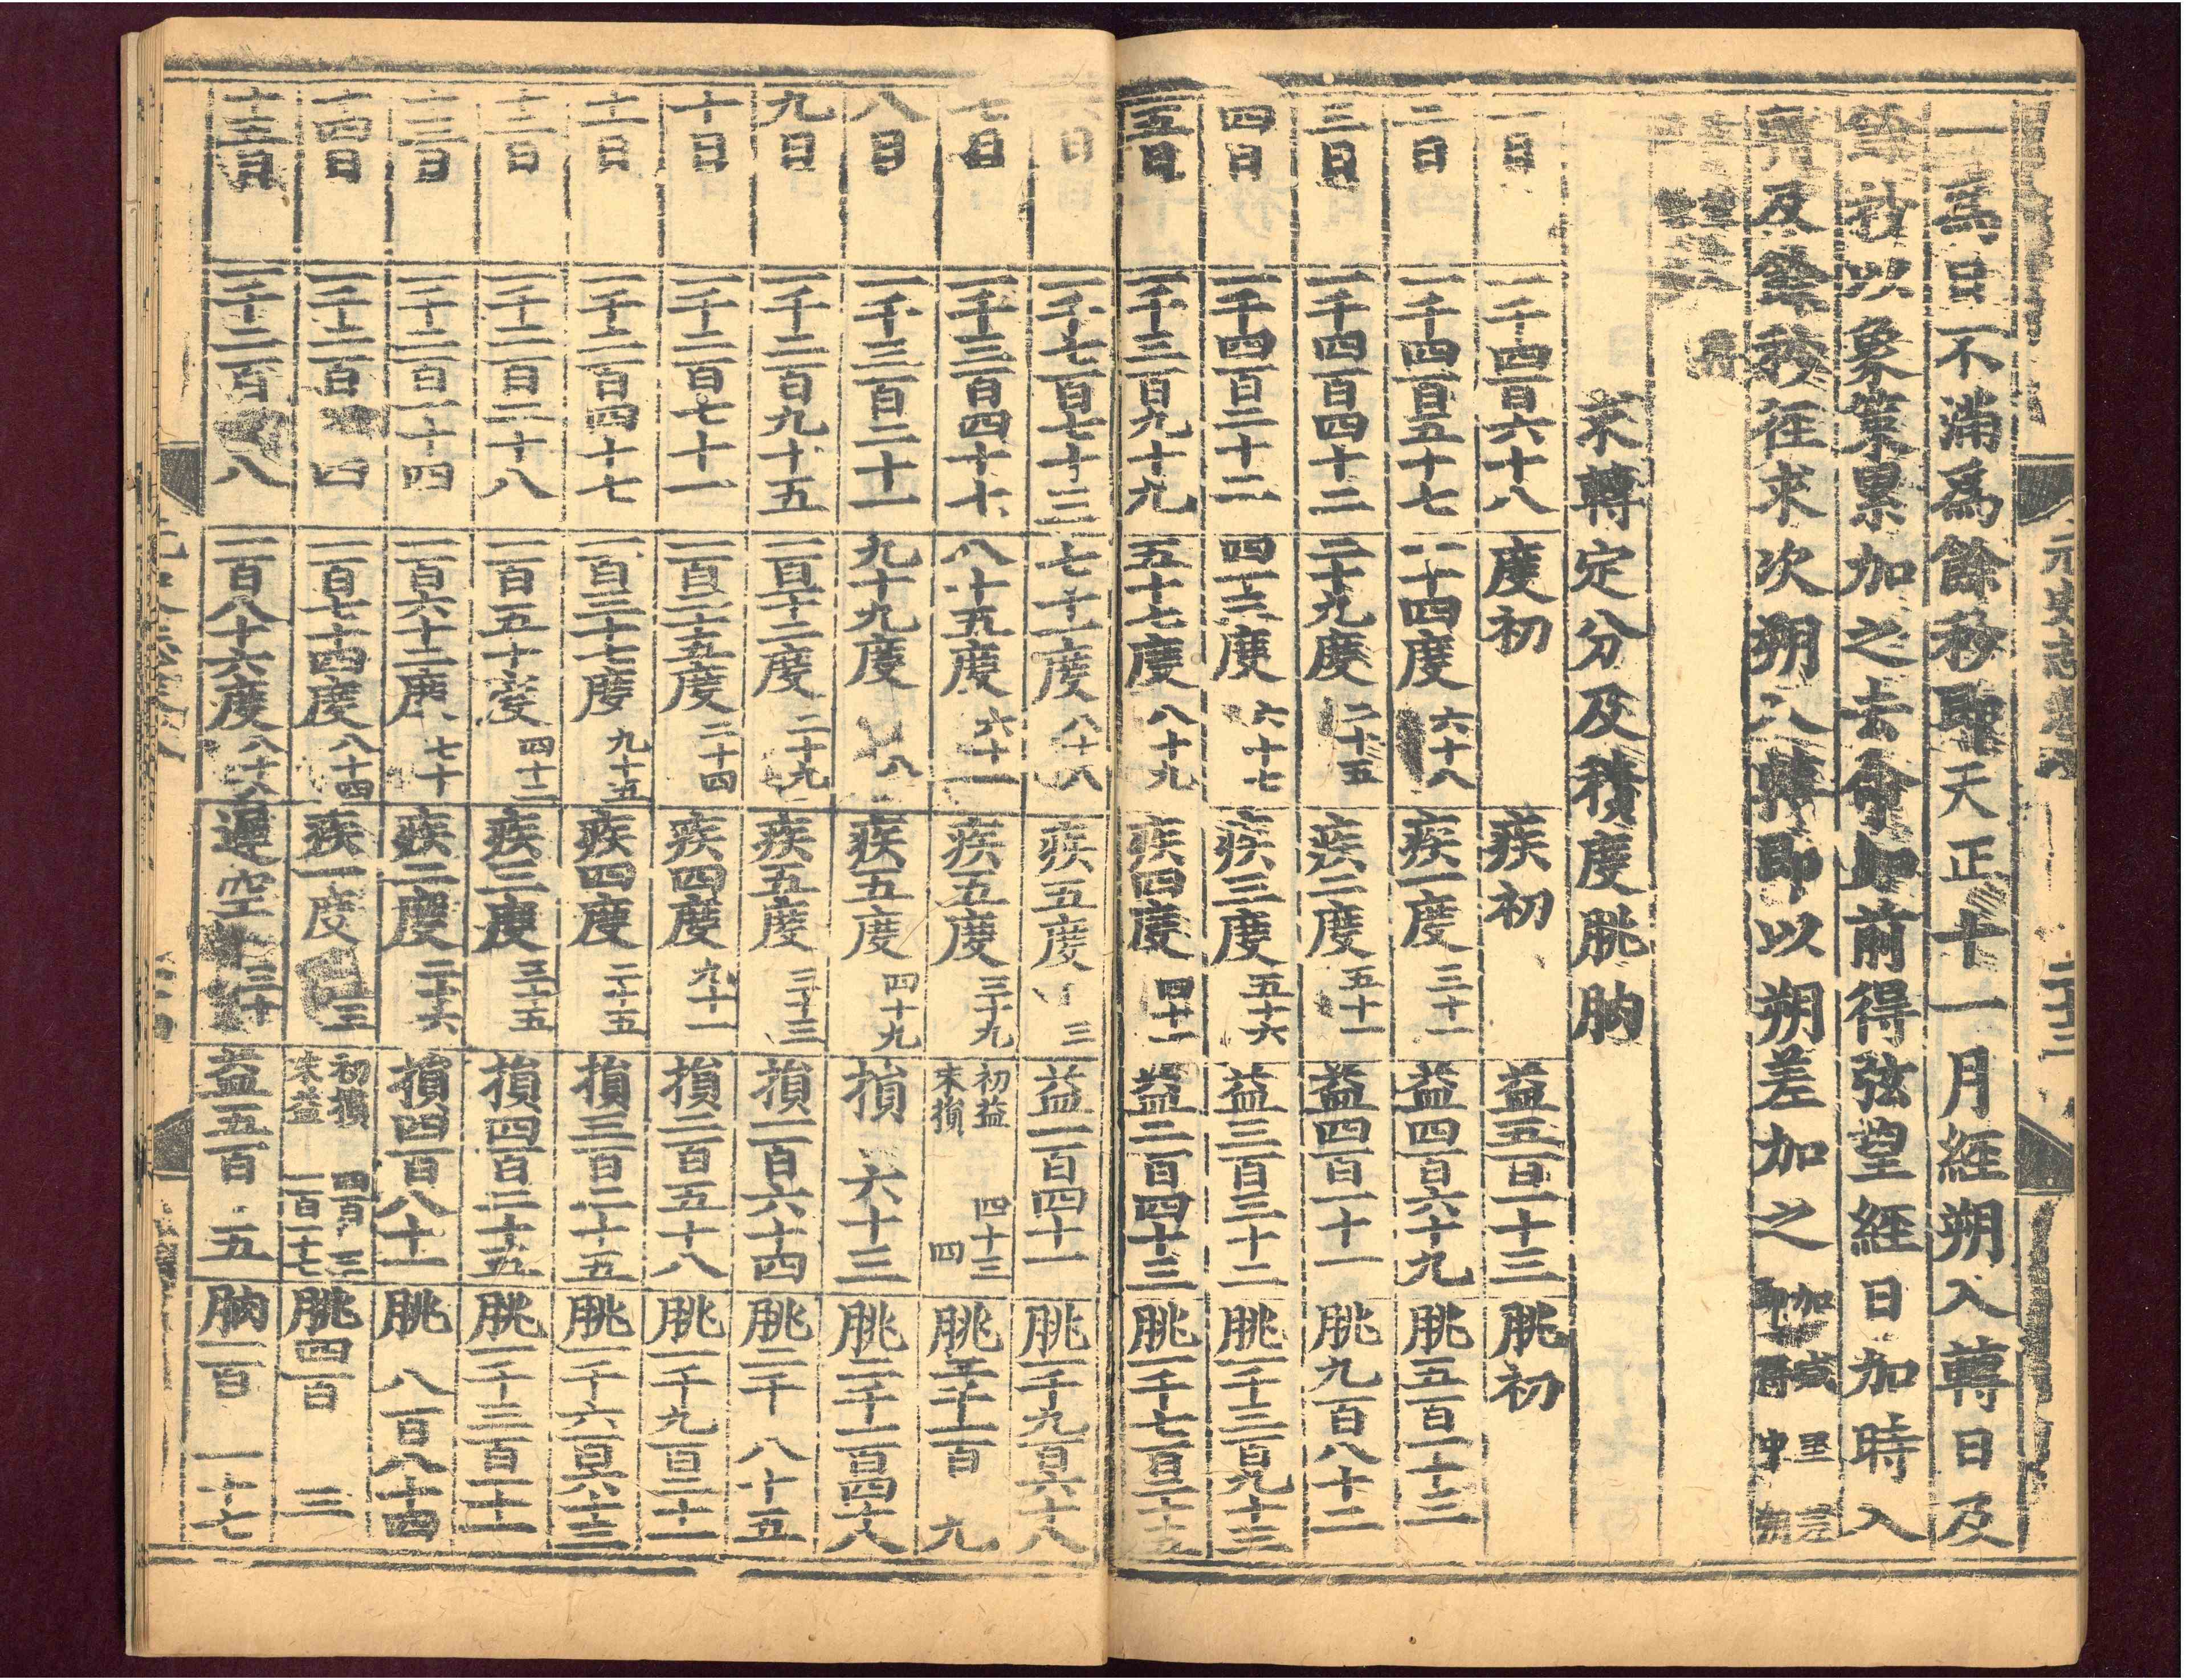 一為日不滿為餘秒即天正十一月經朔入轉日及
餘秒以象策累加之去命如前得弦望經日加時入
轉及餘秒徑求次朔入轉即以朔差加之
求轉定分及積度朓朒
一日 一千四百六十八 度初 疾初 益五百一十三 朓初
二日 一千四百五十七 一十四度 六十八 疾一度 三十一 益四百六十九 朓五百一十三
三日 一千四百四十二 二十九度 二十五 疾二度 五十一 益四百一十一 朓九百八十二
四日 一千四百二十二 四十三度 六十七 疾三度 五十六 益三百三十二 朓一千三百九十三
五日 一千三百九十九 五十七度 八十九 疾四度 四十二 益二百四十三 朓一千七百二十五
六日 一千七百七十三 七十一度 八十八 疾五度 三 益一百四十一 朓一千九百六十八
七日 一千三百四十七 八十五度 六十一 疾五度 三十九 初益 四十三 末損 四 朓二千一百 九
八日 一千三百二十一 九十九度 八 疾五度 四十九 損 六十三 朓二千一百四十八
九日 一千二百九十五 一百一十二度 二十九 疾五度 三十三 損一百六十四 朓二千 八十五
十日 一千二百七十一 一百二十五度 二十四 疾四度 九十一 損二百五十八 朓一千九百二十一
十一日 一千二百四十七 一百三十七度 九十五 疾四度 二十五 損三百三十五 朓一千六百六十三
十二日 一千二百二十八 一百五十度 四十二 疾三度 三十五 損四百三十五 朓一千三百二十一
十三日 一千二百一十四 一百六十二度 七十 疾二度 二十六 損四百八十一 朓 八百八十四
十四日 一千二百 四 一百七十四度 八十四 疾一度 三 初損 四百 三 末益 一百一十七 朓四百 三
十五日 一千二百 八 一百八十六度 八十八 遲空 三十 益五百 五 朒一百 一十七